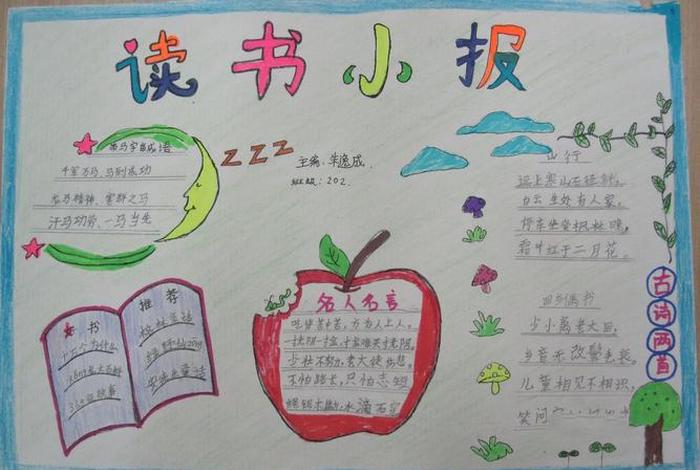 读书小报
带马字成语
千军万马、马到成功
龙马精神、害群之马
汗马功劳、一马当先
ZZZ
主编:朱逸成
班级:202
山行
远上寒山石径斜,
白云生处有人家。
停车坐爱枫林晚,
霜叶红于二月花。
名人名言
吃得苦中苦,方为人上人。
一寸光阴一寸金,寸金难买寸光阴。
少壮不努力,老大徒伤悲。
不怕路长,只怕志短
绳锯木断,水滴石穿
推荐
好书
十万个为什么
格林童话
安徒生童话
古诗两首
回乡偶书
少小离老大回,
乡音无改鬓毛衰。
儿童相见不相识,
笑问